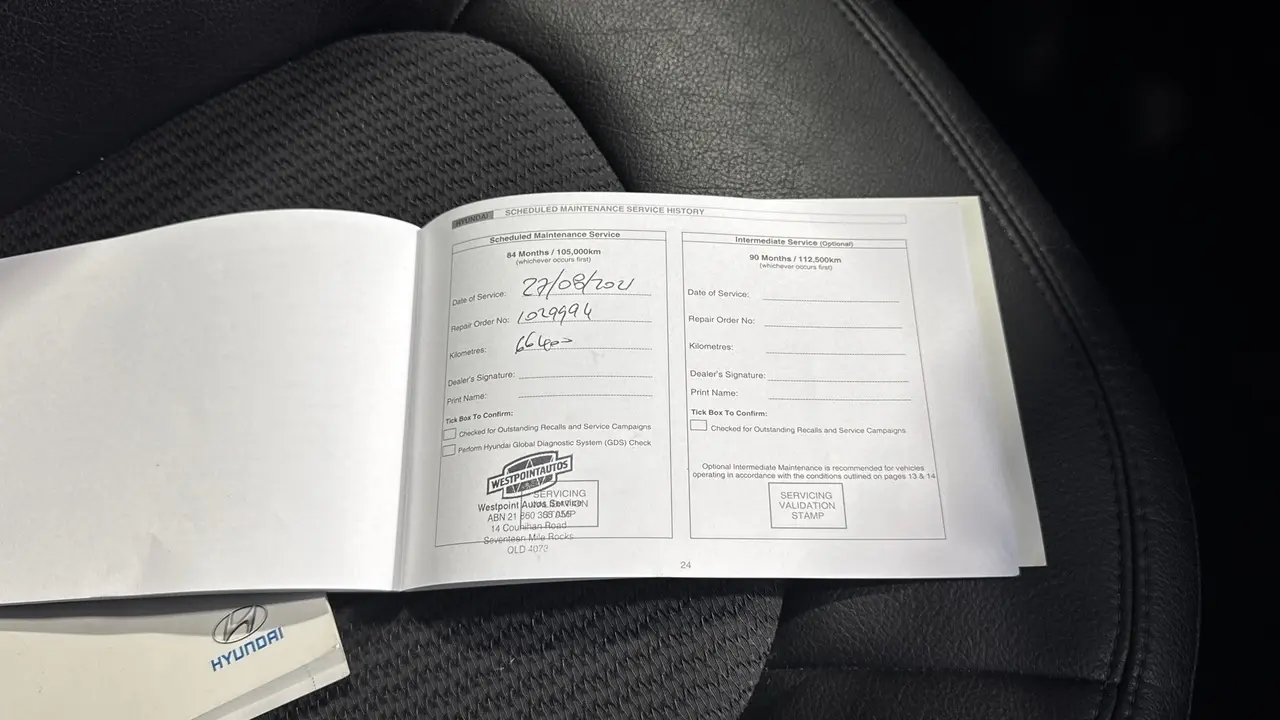 HYUNDAI SCHEDULED MAINTENANCE SERVICE HISTORY
Scheduled Maintenance Service
84 Months / 105,000km
(whichever occurs first)
Date of Service: 27/08/2021
Repair Order No: 1029994
Kilometres:
Dealer's Signature:
Print Name:
Tick Box To Confirm:
Checked for Outstanding Recalls and Service Campaigns
Perform Hyundai Global Diagnostic System (GDS) Check
WESTPOINTAUTOS
SERVICING
VALIDATION
STAMP
Westpoint Autos Service
ABN 21 860
14 Counihan Road
Seventeen Mile Rocks
QLD 4073
Intermediate Service (Optional)
90 Months / 112,500km
(whichever occurs first)
Date of Service:
Repair Order No:
Kilometres:
Dealer's Signature:
Print Name:
Tick Box To Confirm:
Checked for Outstanding Recalls and Service Campaigns
Optional Intermediate Maintenance is recommended for vehicles
operating in accordance with the conditions outlined on pages 13 & 14
SERVICING
VALIDATION
STAMP
24
HYUNDAI